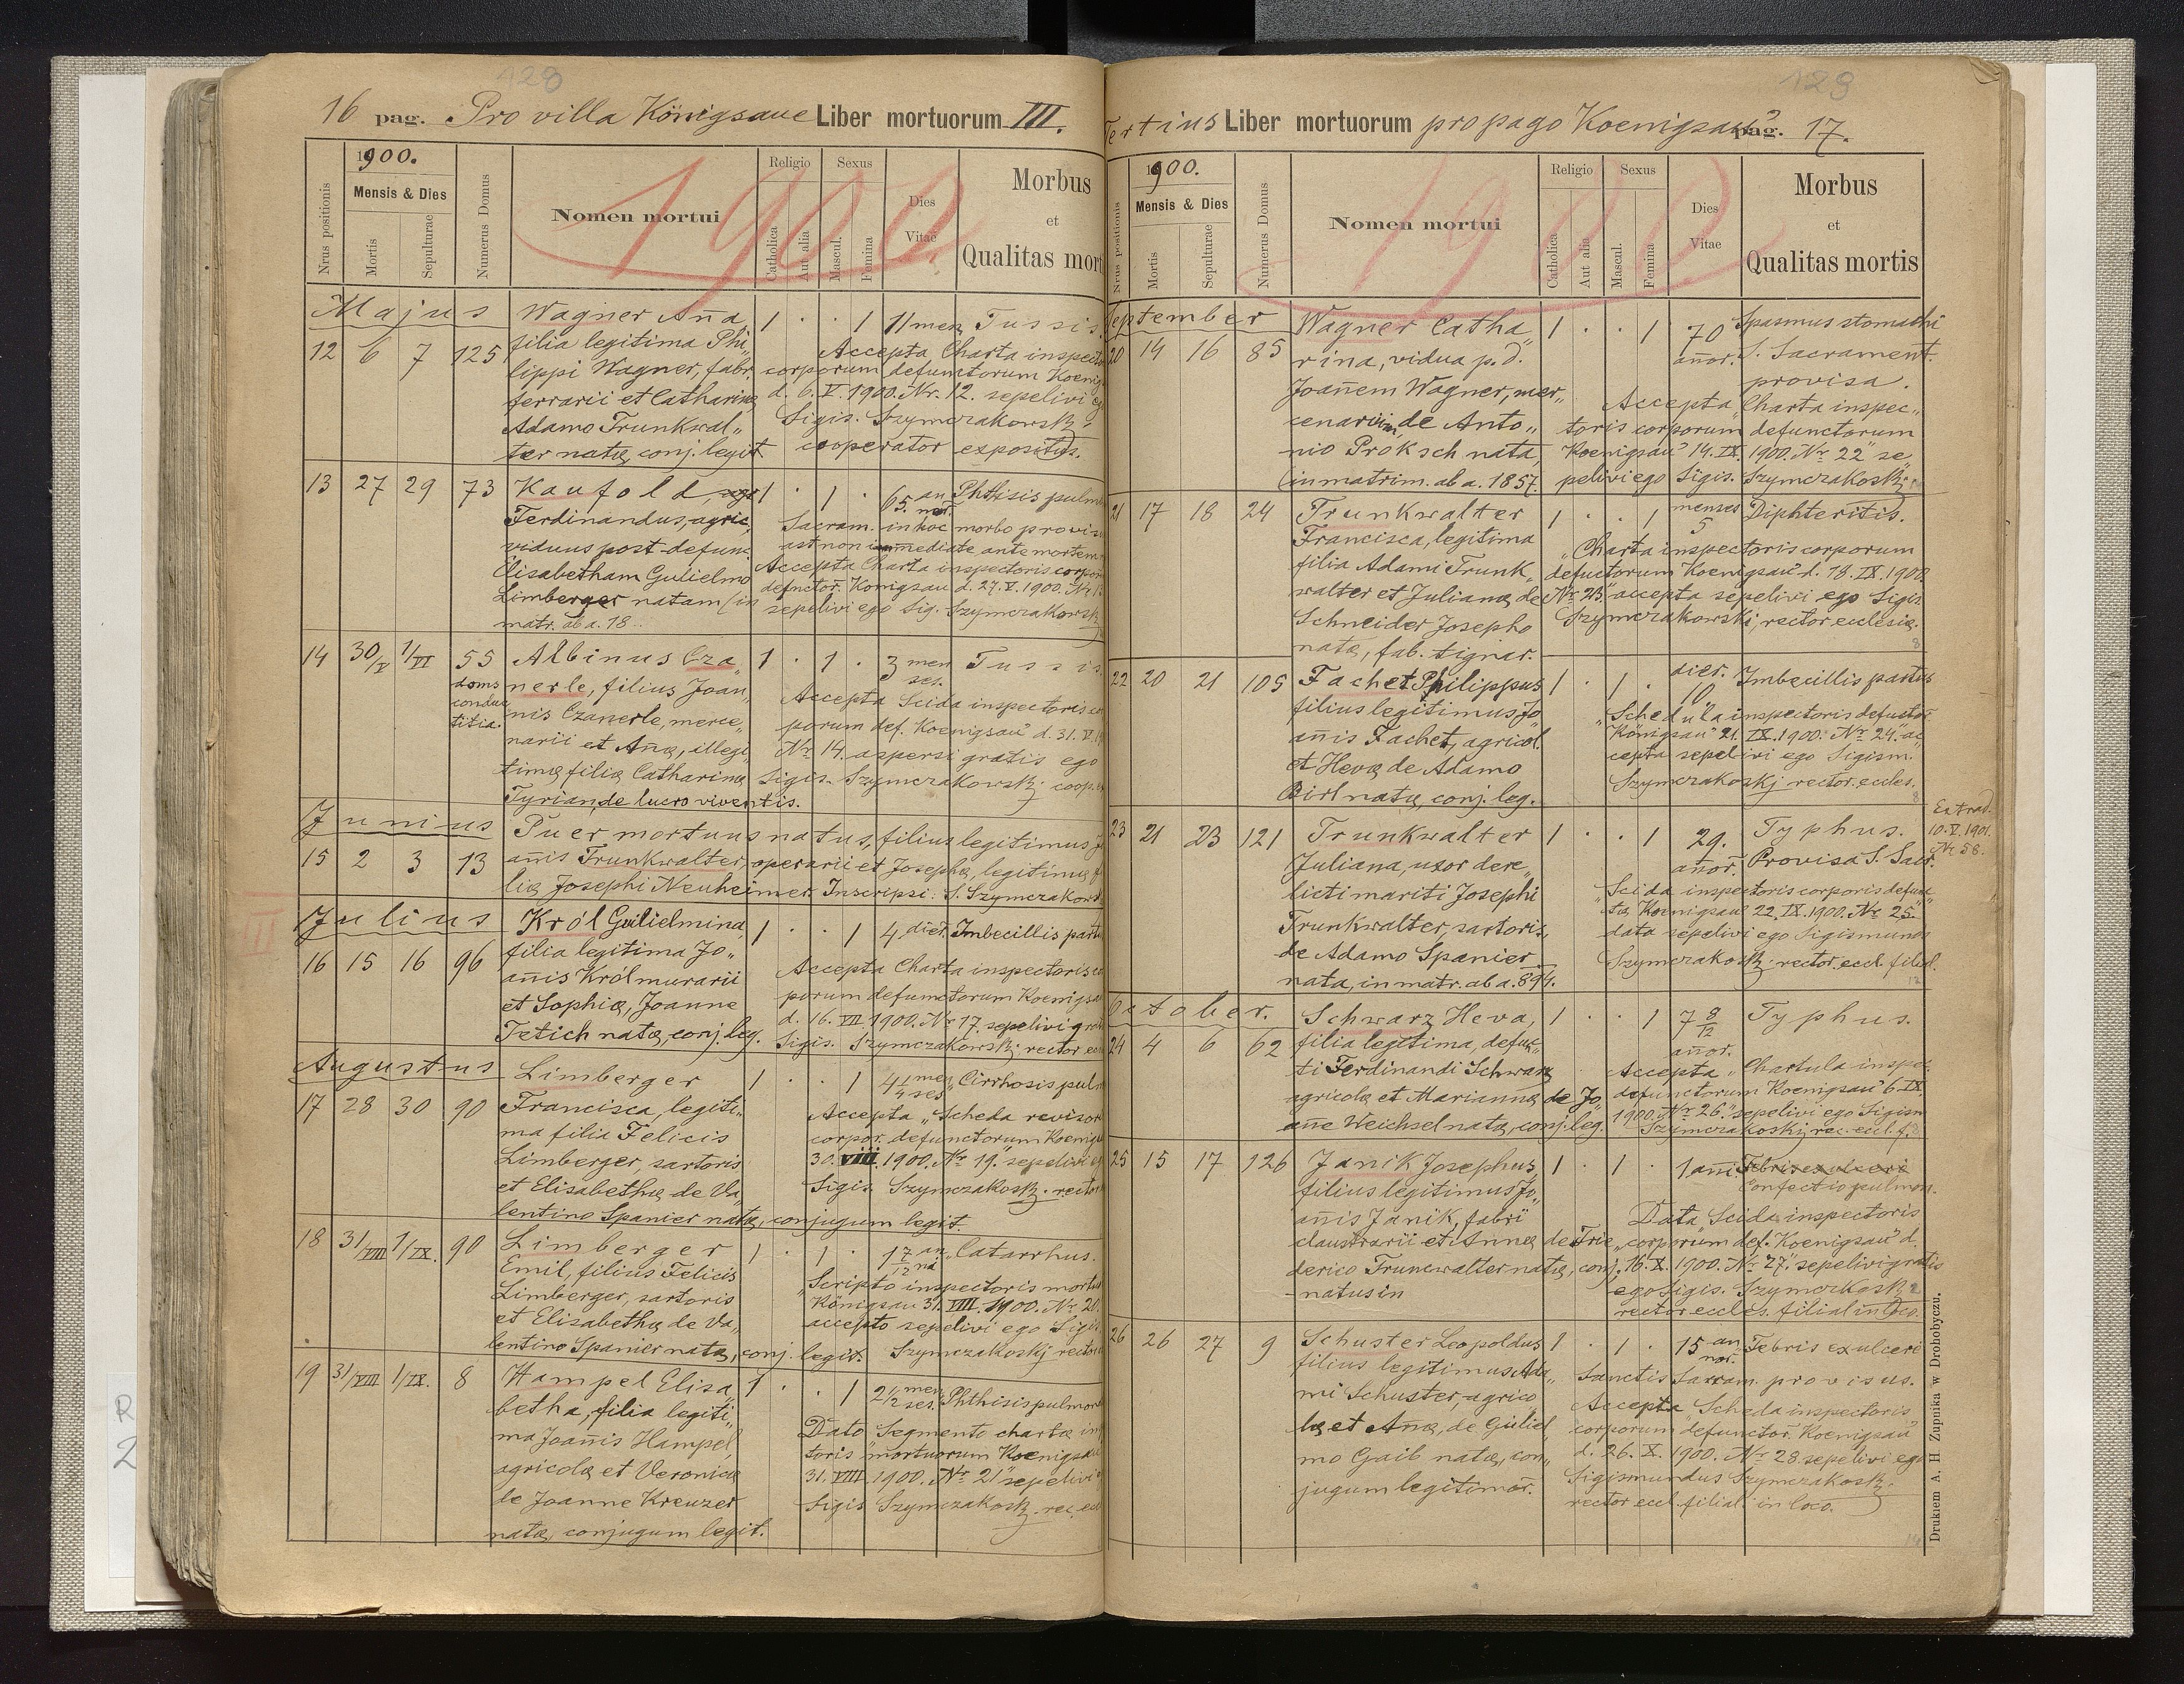 128
16 pag. Pro villa Königsaue Liber mortuorum III.
1900.
Mensis & Dies
Nrus positionis
Mortis
Sepulturae
Numerus Domus
Nomen mortui
1900
Religio
Catholica
Aut alia
Sexus
Mascul.
Femina
Dies
Vitae
Morbus
et
Qualitas mort
Majus
12 6 7 125
Wagner Ana
filia legitima Phi„
lippi Wagner, fabr.
ferrarii et Catharinæ
Adamo Trunkwal„
ter natæ conj. legit
1 . . 1 11 men. Tussis
Accepta Charta inspecto
corporum defunctorum Koenig
d. 6. V. 1900. Nr. 12. sepelivi eg
Sigis. Szymczakowski
cooperator expositus.
13 27 29 73
Kaufold
Ferdinandus, agric.
viduus post defunc.
Elisabetham Gulielmo
Limberger natam (in
matr. ab a. 18..
1 . 1 . 65 an nor. Phthisis pulm
Sacram. in hoc morbo provis
ast non immediate ante mortem
Accepta Charta inspectoris corpor
defnctor. Königsau d. 27. V. 1900. Nr. 13
sepelivi ego Sig. Szymczakowsk
14 30/V 1/VI 55
doms
conduc
titia.
Albinus Cza„
nerle, filius Joan„
nis Czanerle, merce„
narii et Anæ, illegi„
timæ filiæ Catharinæ
Tyrian, de lucro viventis.
1 . 1 . 3 men ses. Tussis.
Accepta Scida inspectoris co
porum def. Koenigsau d. 31. V. 19
Nr 14. aspersi gratis ego
Sigis. Szymczakowski coop. ex
Junius
15 2 3 13
Puer mortuus natus, filius legitimus J
anis Trunkwalter, operarii et Josephæ, legitimæ f
liæ Josephi Neuheimer. Inscripsi: S. Szymczakows
III
Julius
16 15 16 96
Król Gulielmina,
filia legitima Jo„
anis Król murarii
et Sophiæ, Joanne
Tetich natæ, conj. leg.
1 . . 1 4 dier. Imbecillis partu
Accepta Charta inspectoris co
porum defunctorum Koenigsa
d. 16. VII 1900. Nr 17. sepelivi gra
Sigis. Szymczakowski, rector ecc
Augustus
17 28 30 90
Limberger
Francisca, legiti„
ma filia Felicis
Limberger, sartoris
et Elisabethæ de Va„
lentino Spanier natæ, conjugum legit.
1 . . 1 4 1/4 men ses Cirrhosis pulm
Accepta „Scheda revisor
corpor. defunctorum Koenigs
30. VIII. 1900. Nr 19." sepelivi eg
Sigis. Szymczakoski. rector
18 31/VIII 1/IX. 90
Limberger
Emil, filius Felicis
Limberger, sartoris
et Elisabethæ de Va„
lentino Spanier natæ, conj. legit.
1 . 1 . 1 7/12 an ni Catarrhus.
„Scripto inspectoris mortu
Königsau 31. VIII. 1900. Nr. 20.
accepto sepelivi ego Sigis
Szymczakoskj rector
19 31/VIII 1/IX. 8
Hampel Elisa„
betha, filia legiti„
ma Joanis Hampel,
agricolæ et Veronicæ
de Joanne Kreuzer
natæ, conjugum legit.
1 . . 1 2 1/2 men ses. Phthisis pulmon
Dato „Segmento chartæ in
toris mortuorum Koenigsau
31. VIII. 1900. Nr 21" sepelivi
Sigis Szymczakoski. rec. ecc
129
Tertius Liber mortuorum pro pago Koenigsau pag. 17.
1900.
Mensis & Dies
Nrus positionis
Mortis
Sepulturae
Numerus Domus
Nomen mortui
1900
Religio
Catholica
Aut alia
Sexus
Mascul.
Femina
Dies
Vitae
Morbus
et
Qualitas mortis
September
20 14 16 85
Wagner Catha„
rina, vidua p. d.
Joanem Wagner, mer„
cenarium, de Anto„
nio Proksch nata,
(in matrim. ab a. 1857.
1 . . 1 70 anor. Spasmus stomachi
S. Sacrament.
provisa.
Accepta „Charta inspec„
toris corporum defunctorum
Koenigsau 14. IX. 1900. Nr 22" se„
pelivi ego Sigis. Szymczakoskj
21 17 18 24
Trunkwalter
Francisca, legitima
filia Adami Trunk„
walter et Julianæ de
Schneider Josepho
natæ, fab. tignar.
1 . . 1 menses 5 Diphteritis.
„Charta inspectoris corporum
defuctorum Koenigsau d. 18. IX. 1900.
Nr 23." accepta sepelivi ego Sigis.
Szymczakowski, rector ecclesiæ.
22 20 21 105
Fachet Philippus
filius legitimus Jo„
anis Fachet, agricol.
et Hevæ de Adamo
Birl natæ, conj. leg.
1 . 1 . dier. 10 Imbecillis partus
„Schedula inspectoris defuctor.
Königsau" 21. IX. 1900. Nr 24." ac„
cepta sepelivi ego Sigism.
Szymczakoskj rector. eccles.
23 21 23 121
Trunkwalter
Juliana, uxor dere„
licti mariti Josephi
Trunkwalter, sartoris,
de Adamo Spanier
nata, in matr. ab a. 894.
1 . . 1 29. anor. Typhus.
Provisa S. Sacr.
„Scida inspectoris corporis defunc„
tæ Koenigsau 22. IX. 1900. Nr 25."
data sepelivi ego Sigismundus
Szymczakoski rector. eccl. filial.
Extrad.
10. V. 1901.
Nr 58.
October.
24 4 6 62
Schwarz Heva,
filia legitima, defunc„
ti Ferdinandi Schwarz
agricolæ et Mariannæ de Jo„
ane Weichsel natæ, conj. leg.
1 . . 1 7 8/12 anor. Typhus.
Accepta „Chartula inspec.
defunctorum Koenigsau 6. IX.
1900. Nr 26." sepelivi ego Sigism
Szymczakoskj, rec. eccl. f.
25 15 17 126
Janik Josephus,
filius legitimus Jo„
anis Janik, fabri
claustrarii et Annæ de Frie„
derico Trunkwalter natæ, conj.
natus in
1 . 1 . 1 ani. Febris exulceri
Confectio pulmon.
Data „Scida inspectoris
corporum def. Koenigsau d.
16. X. 1900. Nr 27." sepelivi gratis
ego Sigis. Szymczkoski
rector eccles. filial in loco.
26 26 27 9
Schuster Leopoldus
filius legitimus Ada„
mi Schuster, agrico„
læ et Anæ, de Guliel„
mo Gaib natæ, con„
jugum legitimor.
1 . 1 . 15 an nor. Febris exulceri
Sanctis Sacram. provisus.
Accepta „Scheda inspectoris
corporum defunctor. Koenigsau
d. 26. X. 1900. Nr 28. sepelivi ego
Sigismundus Szymczakoski.
rector eccl. filial. in loco.
Drukiem A. H. Zupnika w Drohobyczu.